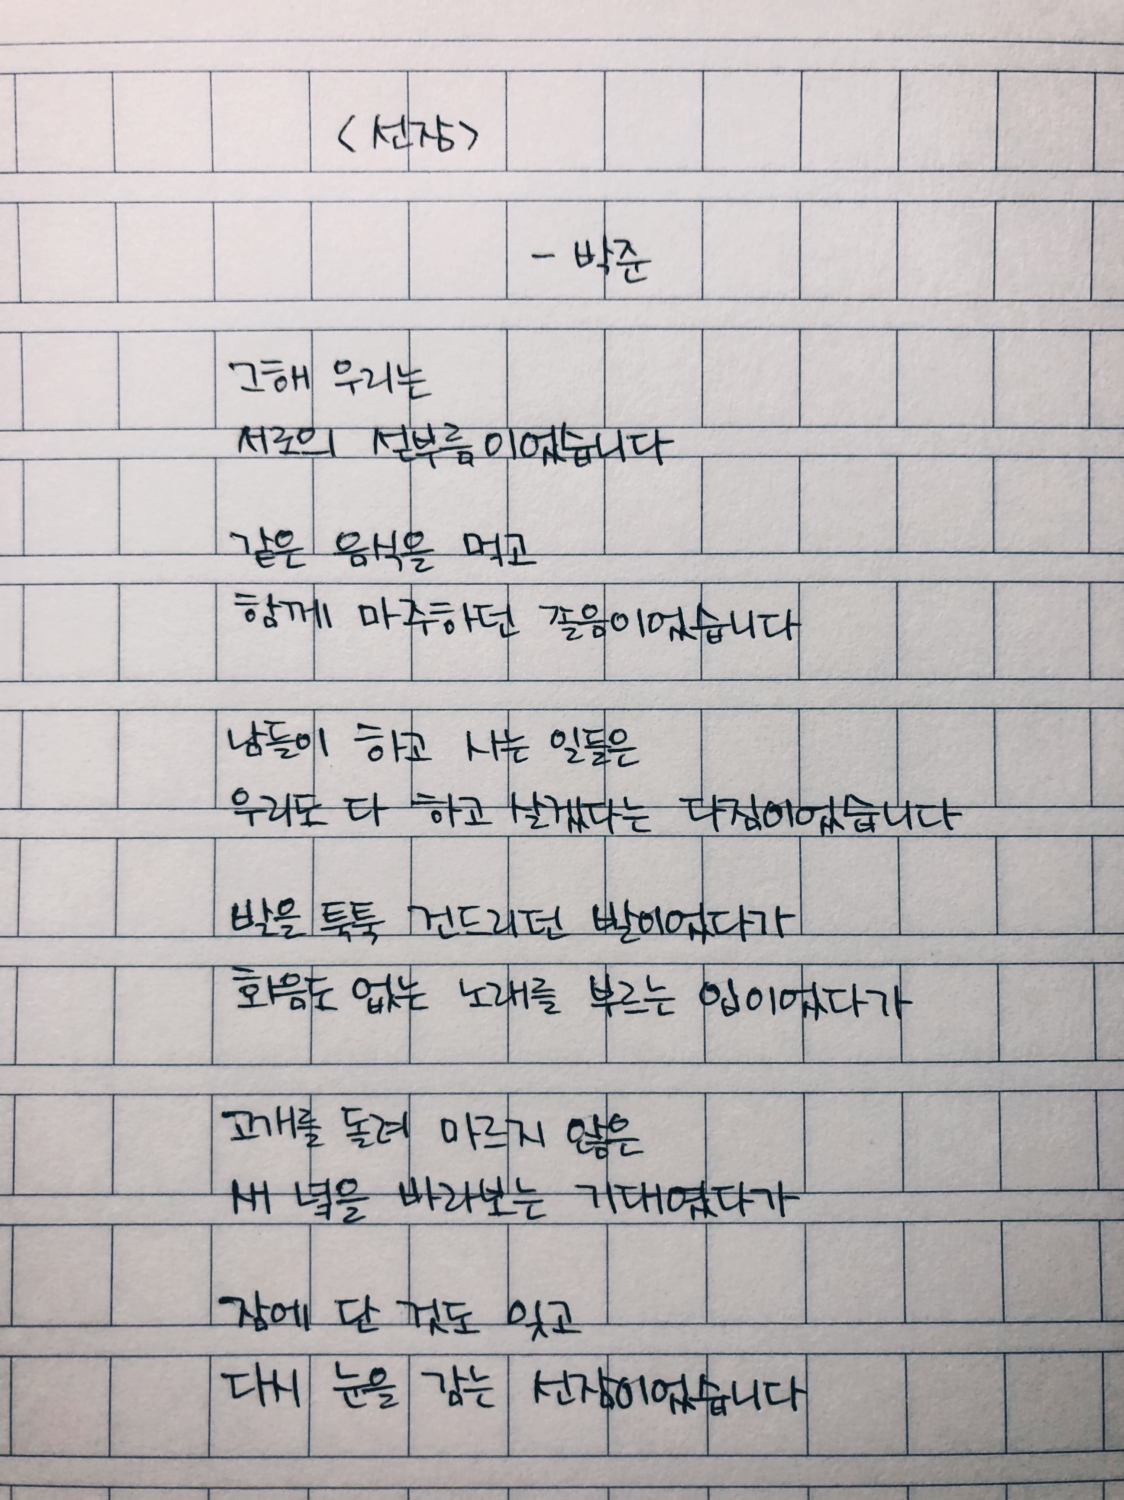 <선잠>
- 박준
그해 우리는
서로의 섣부름이었습니다
같은 음식을 먹고
함께 마주하던 졸음이었습니다
남들이 하고 사는 일들은
우리도 다 하고 살겠다는 다짐이었습니다
발을 툭툭 건드리던 발이었다가
화음도 없는 노래를 부르는 입이었다가
고개를 돌려 마르지 않은
새 녘을 바라보는 기대였다가
잠에 든 것도 잊고
다시 눈을 감는 선잠이었습니다